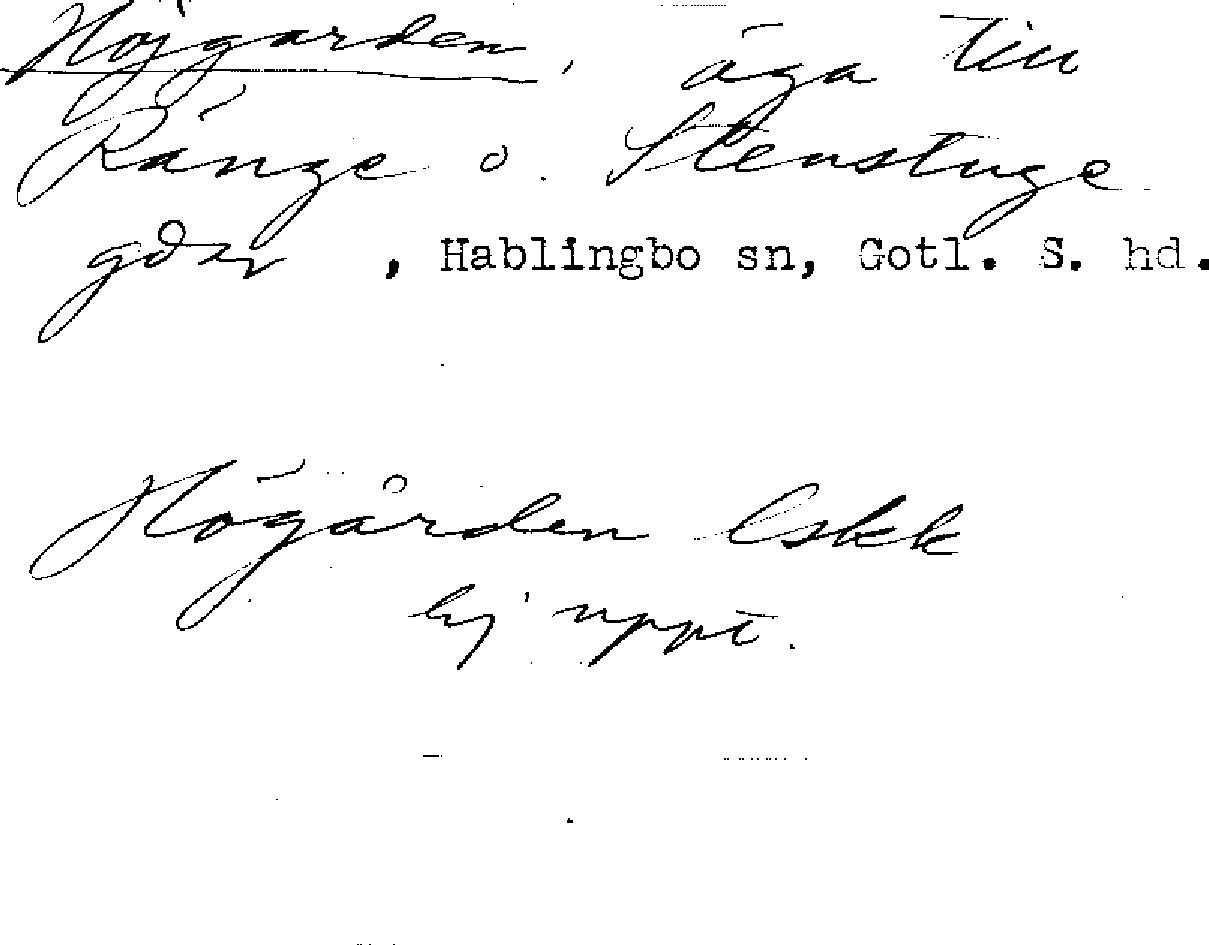 Höjgarden, äga till
Ränge o. Stenstuge
gdar, Hablingbo sn, Gotl. S. hd.
Högården Eskk
Ej uppt.